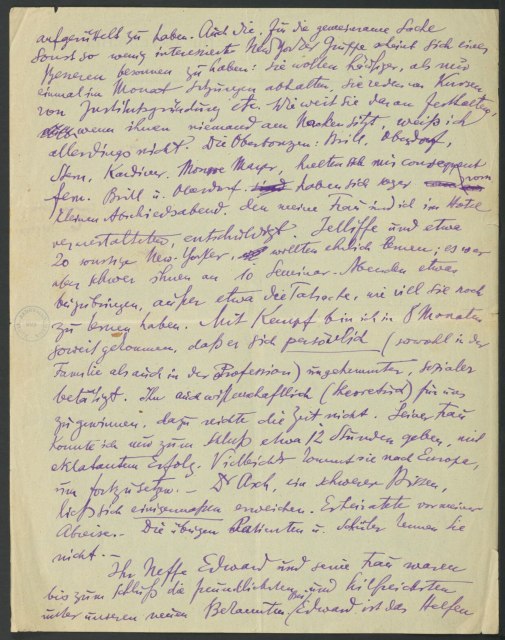 aufgerüttelt zu haben. Auch die, für die gemeinsame Sache
sonst so wenig interessierte New Yorker Gruppe scheint sich eines
Besseren besonnen zu haben: sie wollen häufiger, als nur
einmal im Monat Sitzungen abhalten, sie reden von Kursen,
von Institutsgründung etc. Wie weit sie daran festhalten,
wenn ihnen niemand am Nacken sitzt, weiß ich
allerdings nicht. Die Oberbonzen: Brill, Oberdorf,
Stern, Kardiner, Monroe Meyer, hielten sich mir consequent
fern. Brill u. Oberdorf haben sich sogar vom
kleinen Abschiedsabend, den meine Frau und ich im Hotel
veranstalteten, entschuldigt. Jelliffe und etwa
20 sonstige New-Yorker, wollten ehrlich lernen; es war
aber schwer ihnen an 10 Seminar-Abenden etwas
beizubringen, außer etwa die Tatsache, wie viel sie noch
zu lernen haben. Mit Kempf bin ich in 8 Monaten
soweit gekommen, daß er sich persönlich (sowohl in der
Familie als auch in der Profession) ungehemmter, sozialer
betätigt. Ihn auch wissenschaftlich (theoretisch) für uns
zu gewinnen, dazu reichte die Zeit nicht. Seiner Frau
konnte ich nur zum Schluß etwa 12 Stunden geben, mit
eklatantem Erfolg. Vielleicht kommt sie nach Europa,
um fortzusetzen. – Dr Asch, ein schwerer Bissen,
ließ sich einigermaßen erweichen. Er heiratete vor meiner
Abreise. Die übrigen Patienten u. Schüler kennen Sie
nicht. –
Ihr Neffe Edward und seine Frau waren
bis zum Schluß die freundlichsten und hilfreichsten
unter unseren neuen Bekannten. Bei Edward ist das Helfen